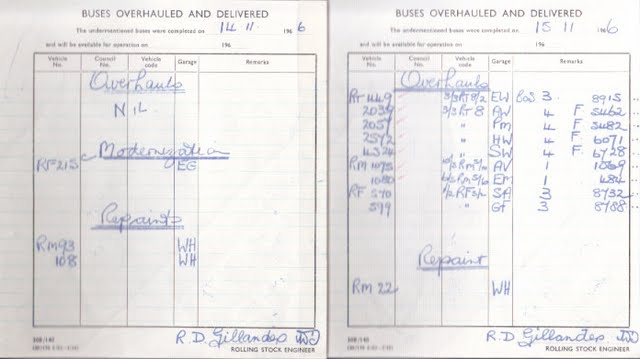 BUSES OVERHAULED AND DELIVERED
The undermentioned buses were completed on 14 11 196 6
and will be available for operation on 196
Vehicle No. Council No. Vehicle code Garage Remarks
Overhauls
NIL
Modernization
RF215 EG
Repaints
RM93 WH
108 WH
R.D. Gillanders
ROLLING STOCK ENGINEER
BUSES OVERHAULED AND DELIVERED
The undermentioned buses were completed on 15 11 196 6
and will be available for operation on 196
Vehicle No. Council No. Vehicle code Garage Remarks
Overhauls
RT 1449 3/3RT8/2 EW BoS 3 8915
2039 3/3RT8 AW 4 F 5462
2057 " PM 4 F 5482
2572 " HW 4 F 6071
4324 " SW 4 F 6728
RM 1075 AV 1 1069
1080 EM 1
RF 570 SA 3 8732
599 " GF 3 8788
Repaint
RM 22 WH
R.D. Gillanders
ROLLING STOCK ENGINEER